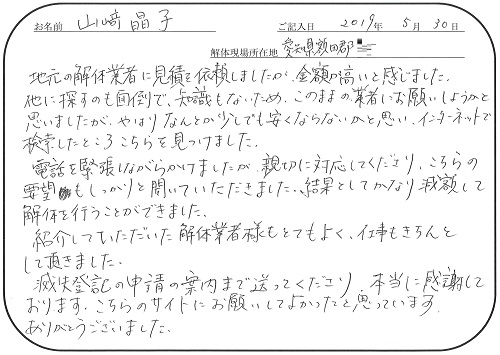 お名前 山﨑晶子 ご記入日 2019年 5月 30日
解体現場所在地 愛知県額田郡
地元の解体業者に見積を依頼しましたが、金額が高いと感じました。
他に探すのも面倒で、知識もないため、このままの業者にお願いしようかと
思いましたが、やはりなんとか少しでも安くならないかと思い、インターネットで
検索したところこちらを見つけました。
電話を緊張しながらかけましたが、親切に対応してくださり、こちらの
要望もしっかりと聞いていただきました。結果としてかなり減額して
解体を行うことができました。
紹介していただいた解体業者様もとてもよく、仕事もきちんと
して頂きました。
滅失登記の申請の案内まで送ってくださり、本当に感謝して
おります。こちらのサイトにお願いしてよかったと思っています。
ありがとうございました。